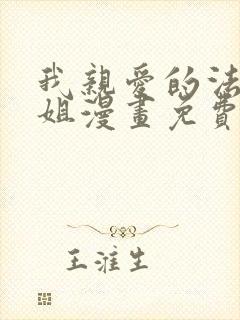 我親愛的法
姐漫畫免費
王淮生